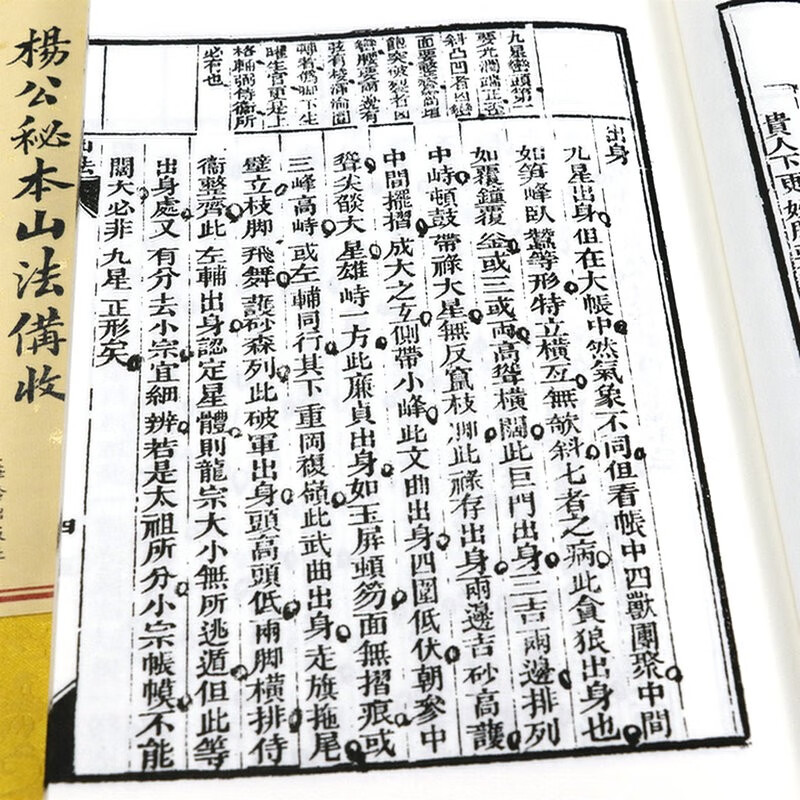 貴人下
出身
九星巒頭第一
要光潤端正歪
斜凸凹者凶巒
面要
飽突破裂者凶
弦有稜
曜生官更是上
格輔弼侍衞所
必有也
九星出身但在大帳中然氣象不同但看帳中四獸團聚中間
如笋峰臥蠶等形特立橫亙無欹斜七者之病此貪狼出身也
如覆鐘覆釡或三或兩高聳橫闊此巨門出身三吉兩邊排列
中峙頓鼓帶祿大星無反竄枝脚此祿存出身兩邊吉砂高護
中間擺摺成大之玄側帶小峰此文曲出身四圍低伏朝參中
聳尖燄大星雄峙一方此廉貞出身如玉屏頓笏面無摺痕或
三峰高峙或左輔同行其下重岡複嶺此武曲出身走旗拖尾
壁立枝脚飛舞護砂森列此破軍出身頭高頭低兩脚橫排侍
衞整齊此左輔出身認定星體則龍宗大小無所逃遁但此等
出身處又有分去小宗宜細辨若是太祖所分小宗帳幙不能
闊大必非九星正形矣
山法
四
楊公秘本山法備收